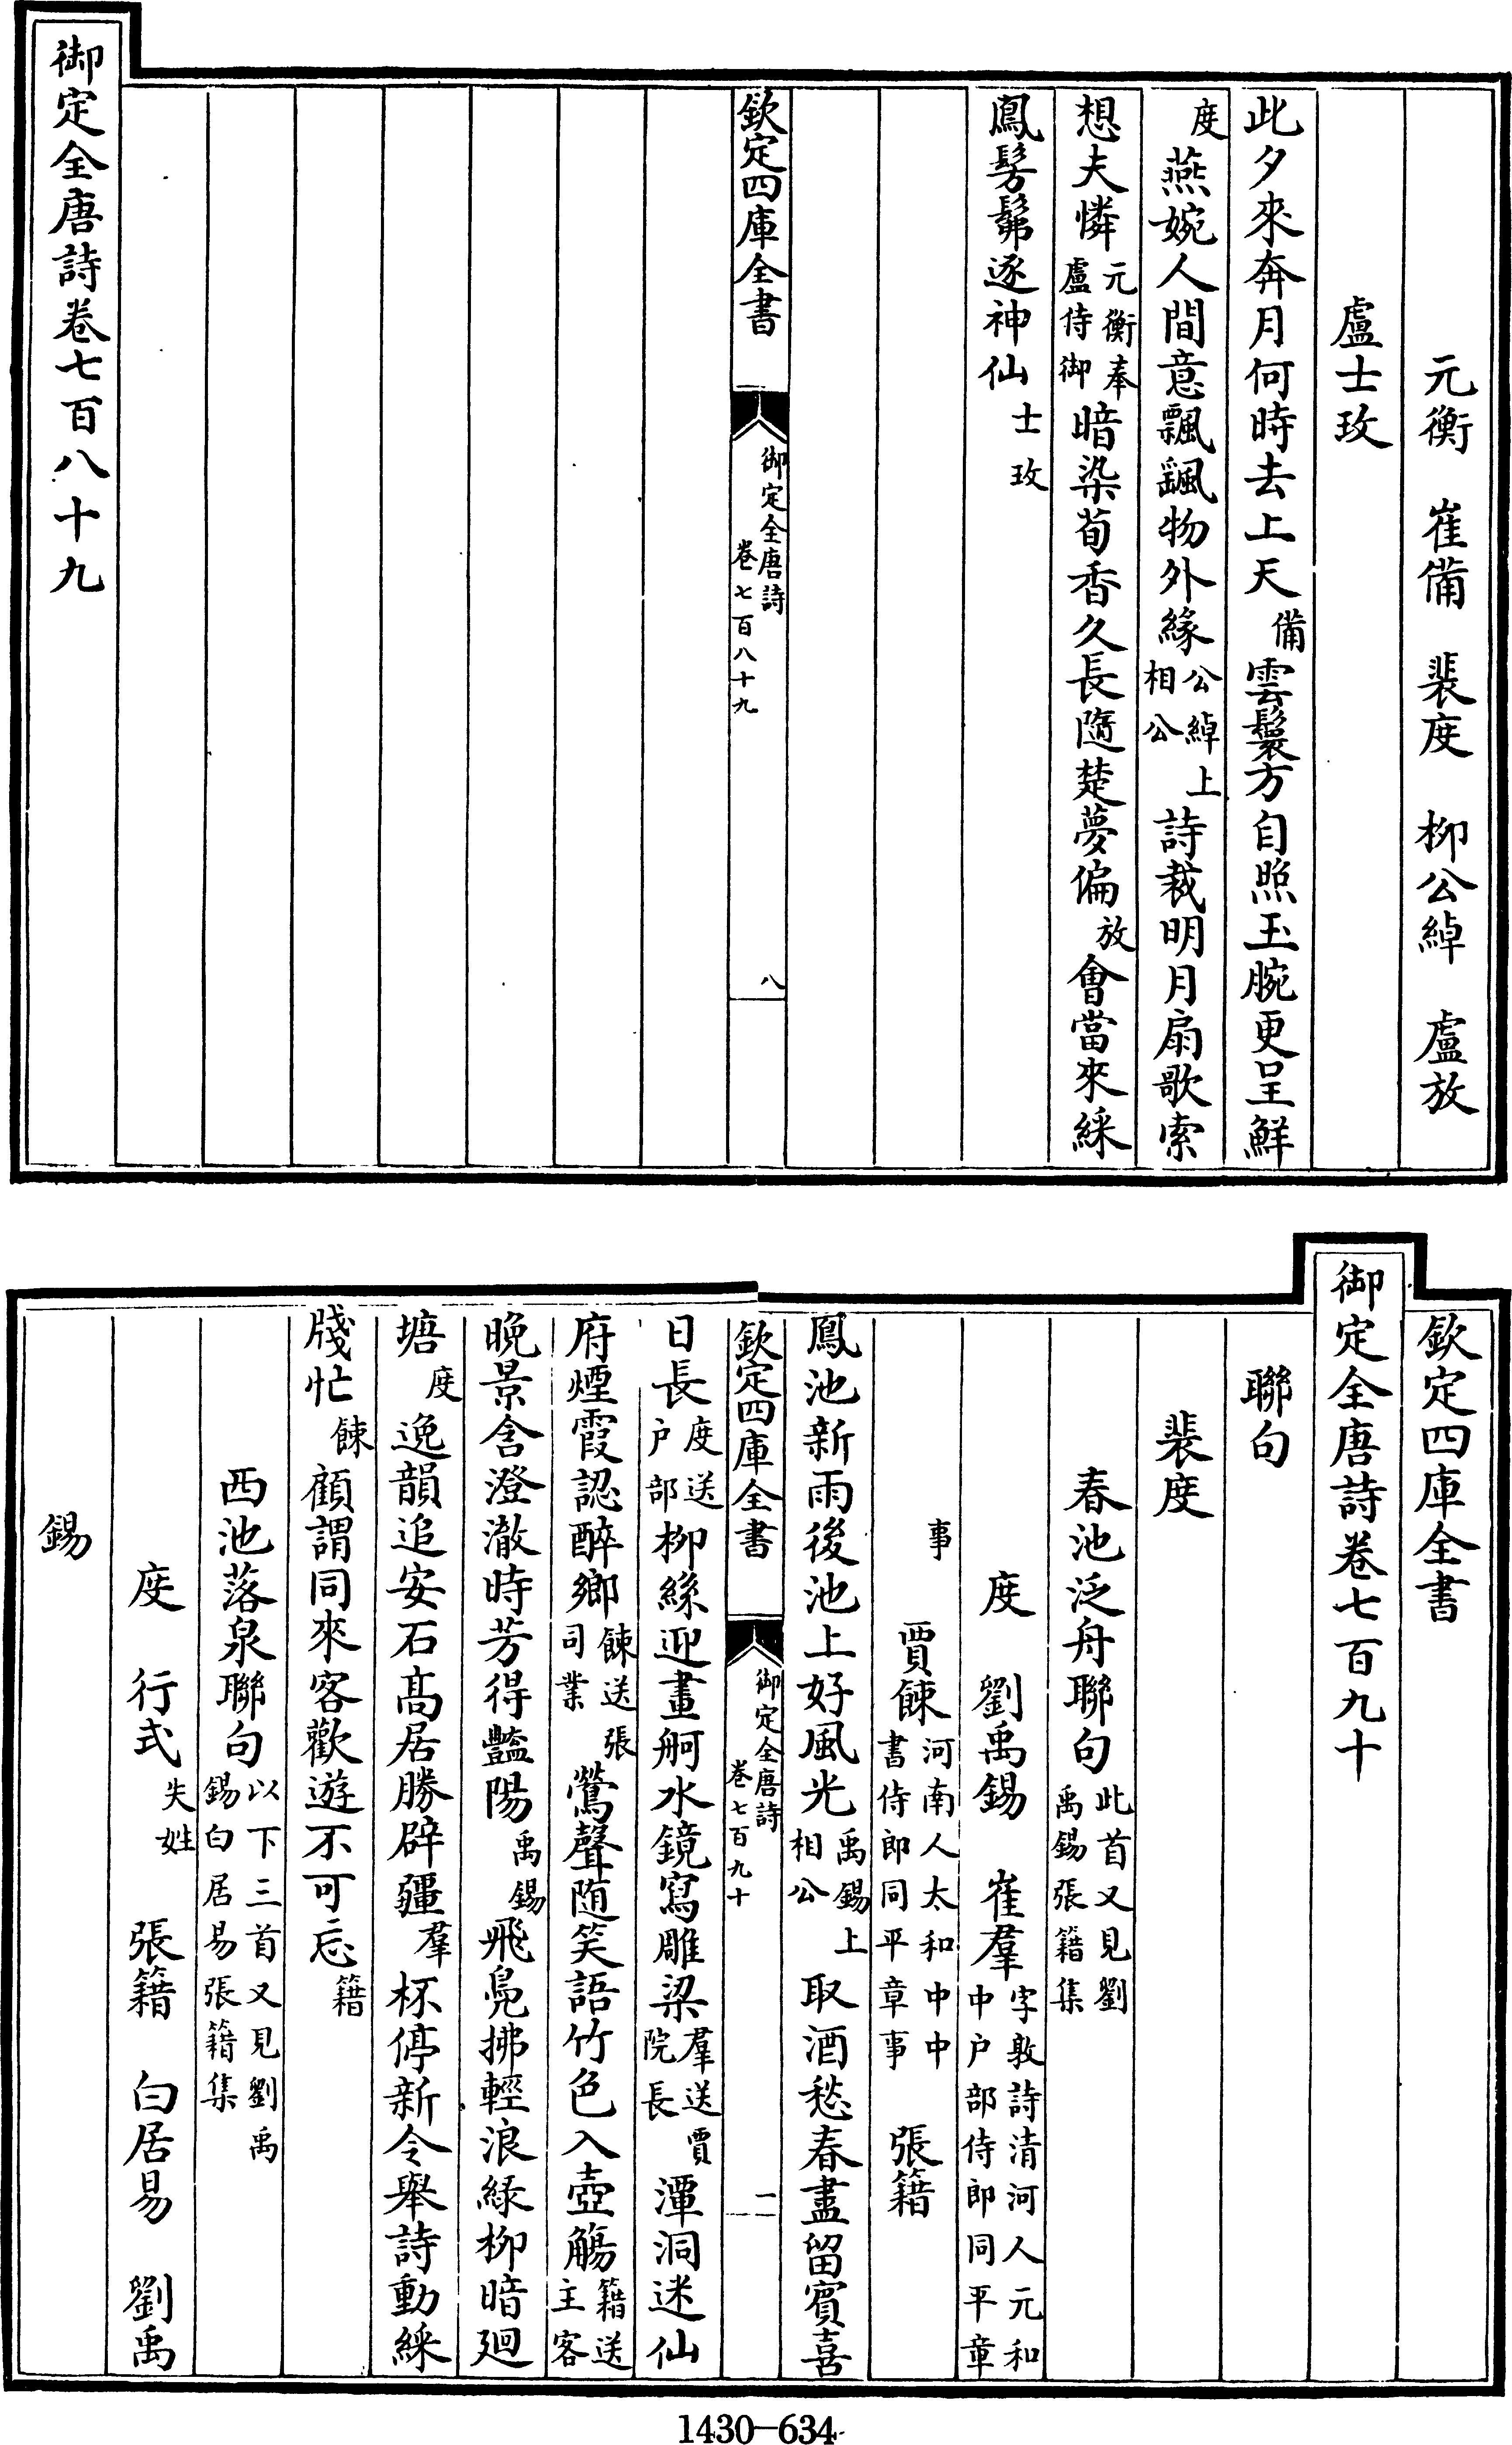 元衡　崔備　裴度　柳公綽　盧放
盧士玫
此夕來奔月何時去上天備雲鬟方自照玉腕更呈鮮
度燕婉人間意飄颻物外緣公綽上相公詩裁明月扇歌索
想夫憐元衡奉盧侍御暗染荀香久長隨楚夢偏放會當來綵
鳳髣髴逐神仙士玫
欽定四庫全書
御定全唐詩
卷七百八十九
八
御定全唐詩卷七百八十九
欽定四庫全書
御定全唐詩卷七百九十
聯句
裴度
春池泛舟聯句此首又見劉禹錫張籍集
度　劉禹錫　崔羣字敦詩清河人元和中户部侍郎同平章
事　賈餗河南人太和中中書侍郎同平章事　張籍
鳳池新雨後池上好風光禹錫上相公取酒愁春盡留賓喜
欽定四庫全書
御定全唐詩
卷七百九十
一
日長度送户部柳絲迎畫舸水鏡寫雕梁羣送賈院長潭洞迷仙
府煙霞認醉鄉餗送張司業鶯聲随笑語竹色入壺觴籍送主客
晩景含澄澈時芳得豔陽禹錫飛鳧拂輕浪緑柳暗廻
塘度逸韻追安石高居勝辟疆羣杯停新令舉詩動綵
牋忙餗顧謂同來客歡遊不可忘籍
西池落泉聯句以下三首又見劉禹錫白居易張籍集
度　行式失姓　張籍　白居易　劉禹
錫
1430-634